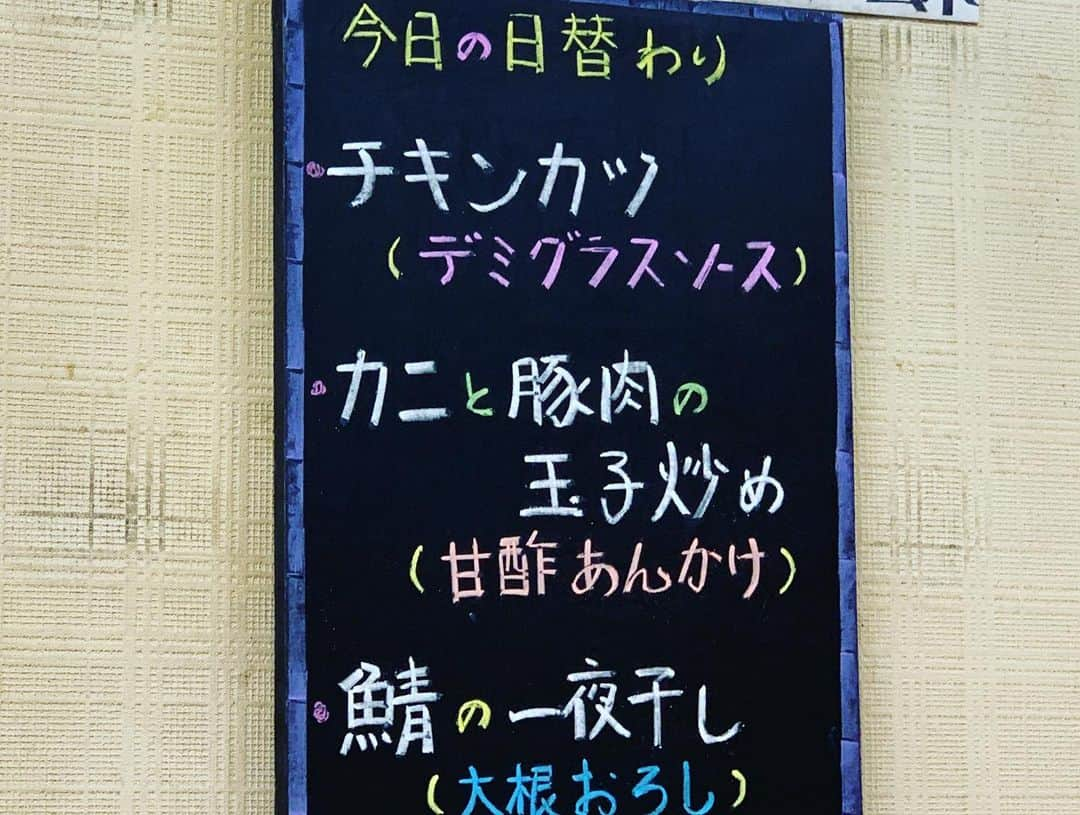 今日の日替わり
・チキンカツ
(デミグラスソース)
・カニと豚肉の
玉子炒め
(甘酢あんかけ)
・鯖の一夜干し
(大根おろし)